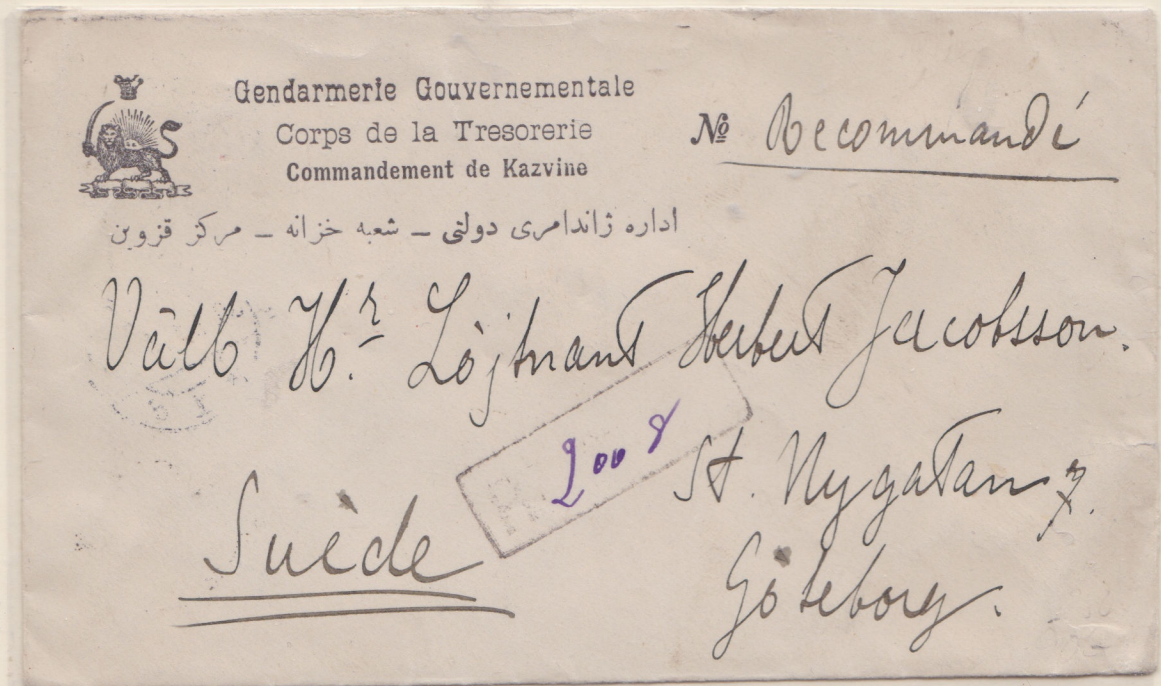 Gendarmerie Gouvernementale
Corps de la Tresorerie
Commandement de Kazvine
№ Recommandé
اداره ژاندامری دولتی ـ شعبه خزانه ـ مرکز قزوین
Välb Hr. Löjtnant Herbert Jacobsson.
R
2008
St. Nygatan 7.
Suède
Göteborg.